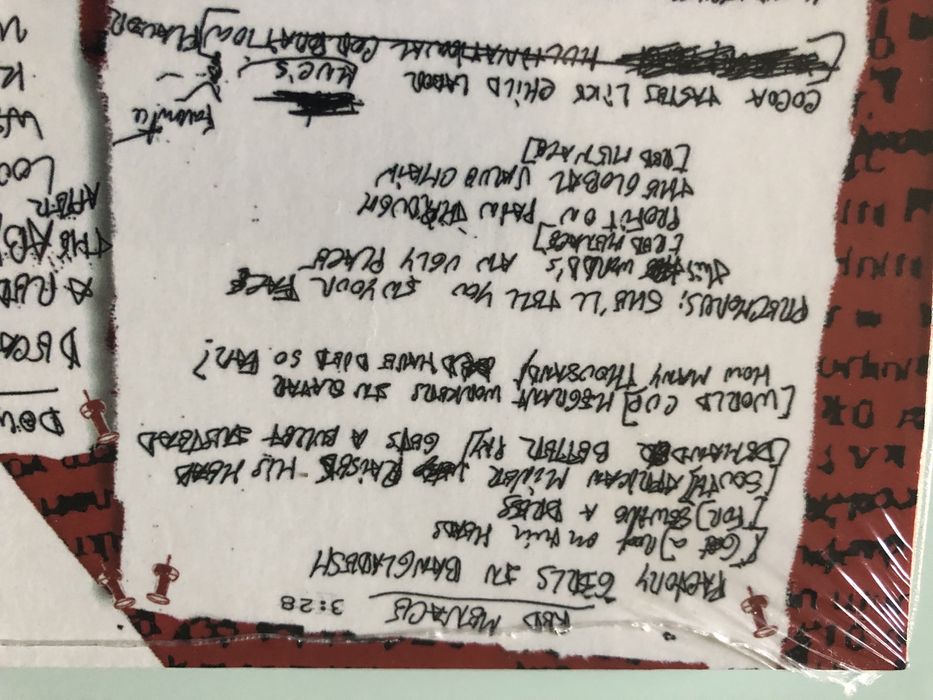 RED MENACE 3:28
FACTORY GIRLS IN BANGLADESH
[Got a] roof on their heads
[FOR] SEWING A DRESS
[SOUTH] AFRICAN MINER RAISES HIS HEAD
[DEMAND BETTER PAY] GETS A BULLET INSTEAD
[WORLD CUP] MIGRANT WORKERS IN QATAR
HOW MANY THOUSANDS HAVE DIED SO FAR?
PRECHORUS: SHE'LL TELL YOU IN YOUR FACE
this WORLD'S AN UGLY PLACE
[RED MENACE]
PROFIT ON PAIN THROUGH
THE GLOBAL VALUE CHAIN
[RED MENACE]
COCOA TASTES LIKE CHILD LABOR
MNC's Favorite
[MULTINATIONAL CORPORATION] FLAVOR
DOW
DECA
A RED
THE AB
AFTER
LOO